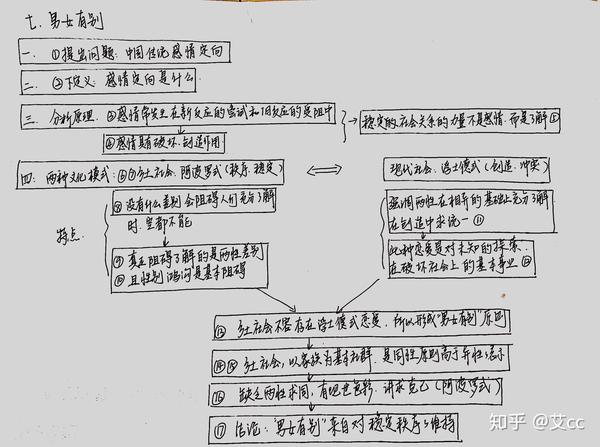 七、男女有别
一、①提出问题：中国传统感情定向
二、②下定义：感情定向是什么
三、分析原理：③感情常发生在新反应的尝试和旧反应的受阻中
④感情具有破坏、创造作用
稳定的社会关系的力量不是感情，而是了解⑤
四：两种文化模式：⑥⑦乡土社会：阿波罗式（秩序、稳定）
现代社会：浮士德式（创造、冲突）
特点
⑧没有什么差别会阻碍人们充分了解
时，空都不能
强调两性在相异的基础上充分了解
在创造中求统一⑪
⑨真正阻碍了解的是两性差别
⑩且性别鸿沟是基本阻碍
此种态度是对未知的探索，
在破坏社会上的基本事业⑫
⑬乡土社会不容存在浮士德式态度，所以形成"男女有别"原则
⑭⑮乡土社会，以家族为基本社群，是同性原则高于异性
⑯缺乏两性求同，有现世色彩，讲求克己（阿波罗式）
⑰结论："男女有别"来自对稳定秩序的维持
知乎 @艾cc